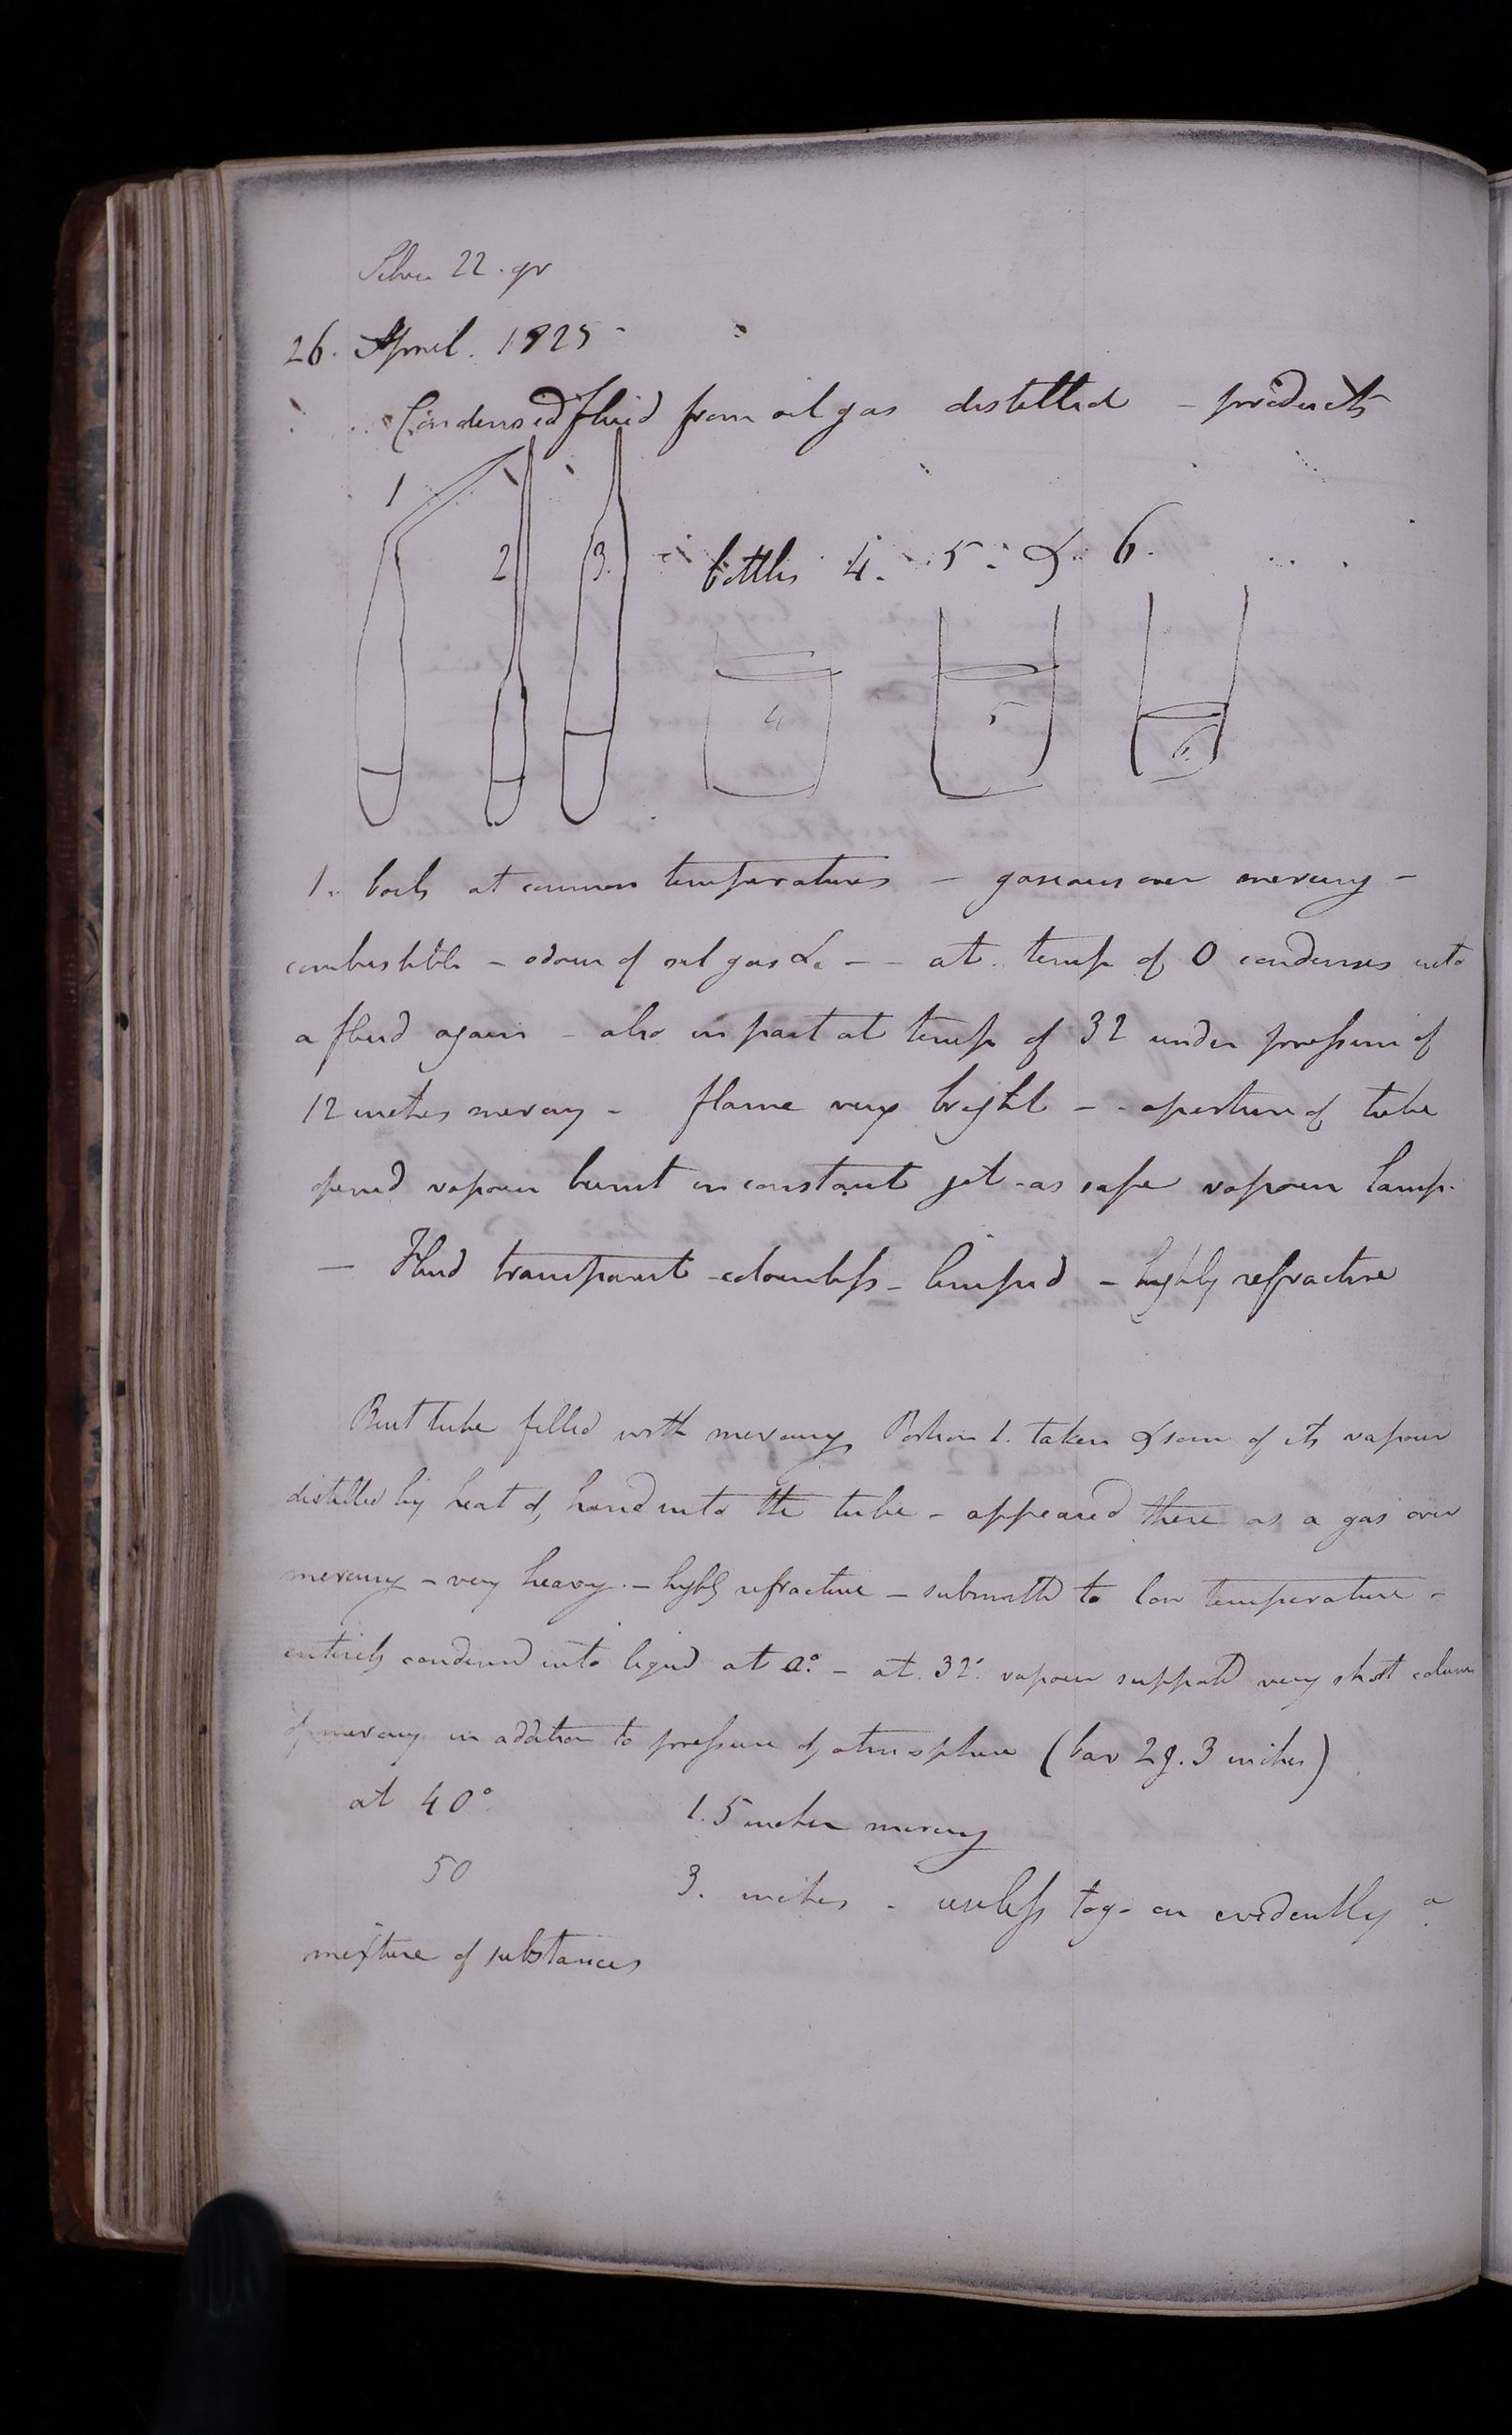 Silver 22. gr
26. April. 1825 -
Condensed fluid from oil gas distilled - products
1 2 3. bottles 4. 5. & 6.
4 5 6.
1. boils at common temperatures - gaseous over mercury -
combustible - odour of oil gas &c - - at temp of 0 condenses into
a fluid again - also in part at temp of 32 under pressure of
12 inches mercury - flame very bright - - aperture of tube
opened vapour burnt in constant jet - as safe vapour lamp.
- Fluid transparent - colourless - limpid - highly refractive
Bent tube filled with mercury Portion 1. taken & some of its vapour
distilled by heat of hand into the tube - appeared there as a gas over
mercury - very heavy. - highly refractive - submitted to low temperature -
entirely condensed into liquid at 0° - at 32° vapour supported very short column
of mercury in addition to pressure of atmosphere (bar 29.3 inches)
at 40° 1.5 inches mercury
50 3. inches - useless to go on evidently a
mixture of substances